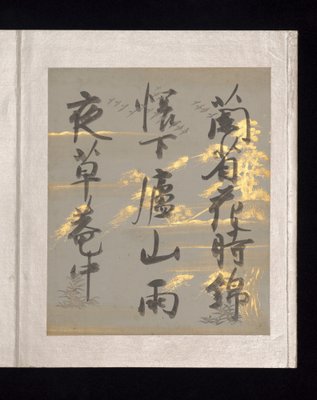 蘭省花時錦
帳下廬山雨
夜草菴中